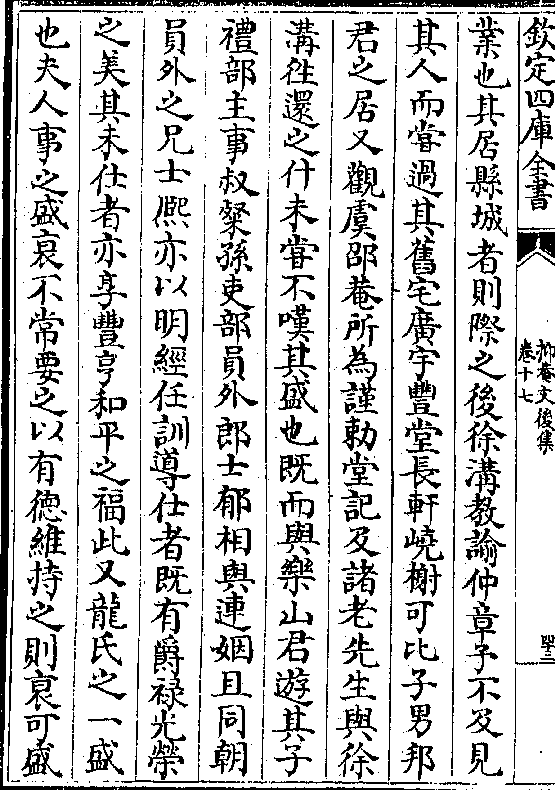 欽定四庫全書
抑菴文後集
卷十七
業也其居縣城者則際之後徐溝教諭仲章予不及見
其人而嘗過其舊宅廣宇豐堂長軒嶢榭可比子男邦
君之居又觀虞邵菴所為謹勅堂記及諸老先生與徐
溝往還之什未嘗不嘆其盛也既而與樂山君遊其子
禮部主事叔粲孫吏部員外郎士郁相與連姻且同朝
員外之兄士熈亦以明經任訓導仕者既有爵禄光榮
之美其未仕者亦享豐亨和平之福此又龍氏之一盛
也夫人事之盛衰不常要之以有德維持之則衰可盛